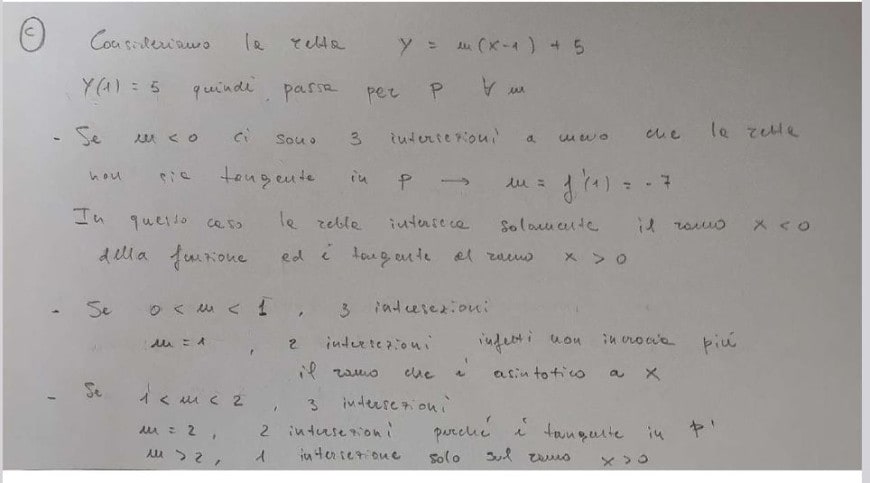 C
Consideriamo la retta y = m(x-1) + 5
y(1) = 5 quindi passa per P ∀ m
- Se m < 0 ci sono 3 intersezioni a meno che la retta
non sia tangente in P → m = f'(1) = -7
In questo caso la retta interseca solamente il ramo x < 0
della funzione ed è tangente al ramo x > 0
- Se 0 < m < 1 , 3 intersezioni
m = 1 , 2 intersezioni infatti non incrocia più
il ramo che è asintotico a x
- Se 1 < m < 2 , 3 intersezioni
m = 2 , 2 intersezioni perché è tangente in P'
m > 2 , 1 intersezione solo sul ramo x > 0